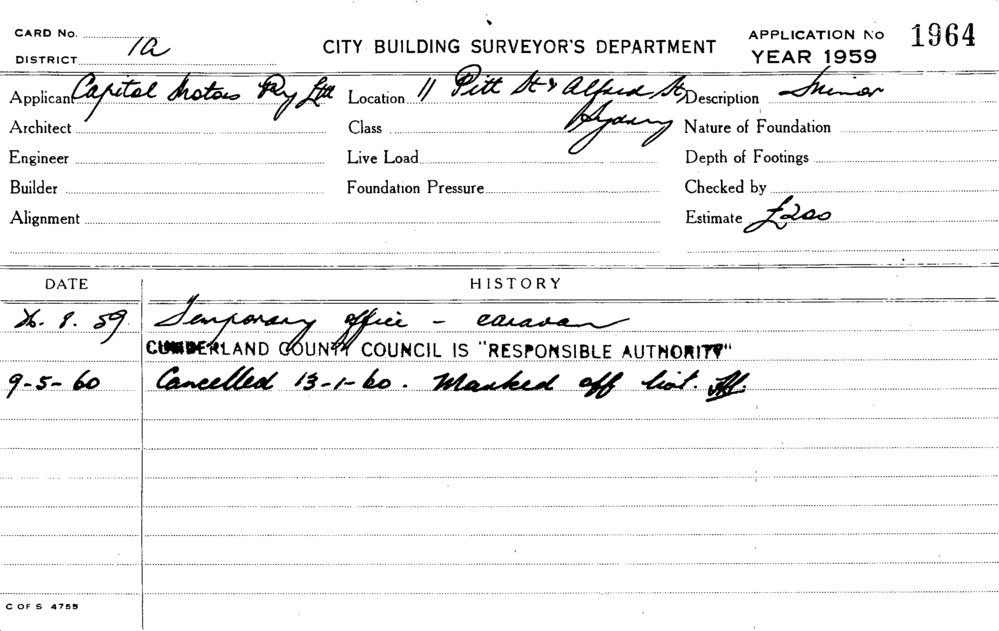 CARD No.
DISTRICT 1a
CITY BUILDING SURVEYOR'S DEPARTMENT
APPLICATION No 1964
YEAR 1959
Applicant Capitol Motors Pty Ltd Location 11 Pitt St & Alfred St, Sydney Description Minor
Architect Class Nature of Foundation
Engineer Live Load Depth of Footings
Builder Foundation Pressure Checked by
Alignment Estimate £200
DATE HISTORY
26. 8. 59 Temporary office - caravan
CUMBERLAND COUNTY COUNCIL IS "RESPONSIBLE AUTHORITY"
9-5-60 Cancelled 13-1-60. Marked off list.
C OF S 4755